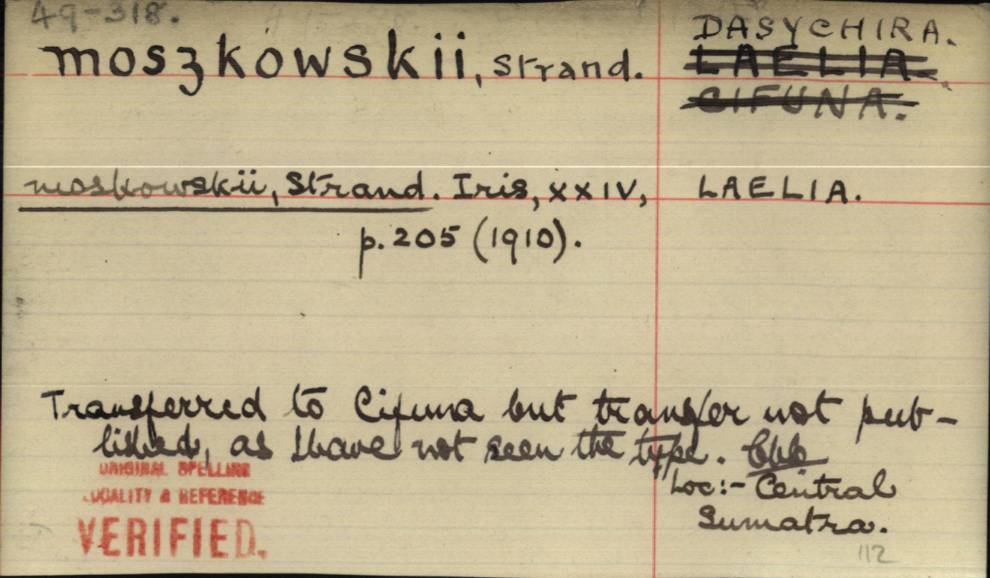 49-318.
moszkowskii, Strand.
DASYCHIRA.
LAELIA.
CIFUNA.
moskowskii, Strand. Iris, XXIV,
LAELIA.
p. 205 (1910).
Transferred to Cifuna but transfer not pub-
lished, as I have not seen the type.
Loc:- Central
Sumatra.
ORIGINAL SPELLING
LOCALITY & REFERENCE
VERIFIED.
112